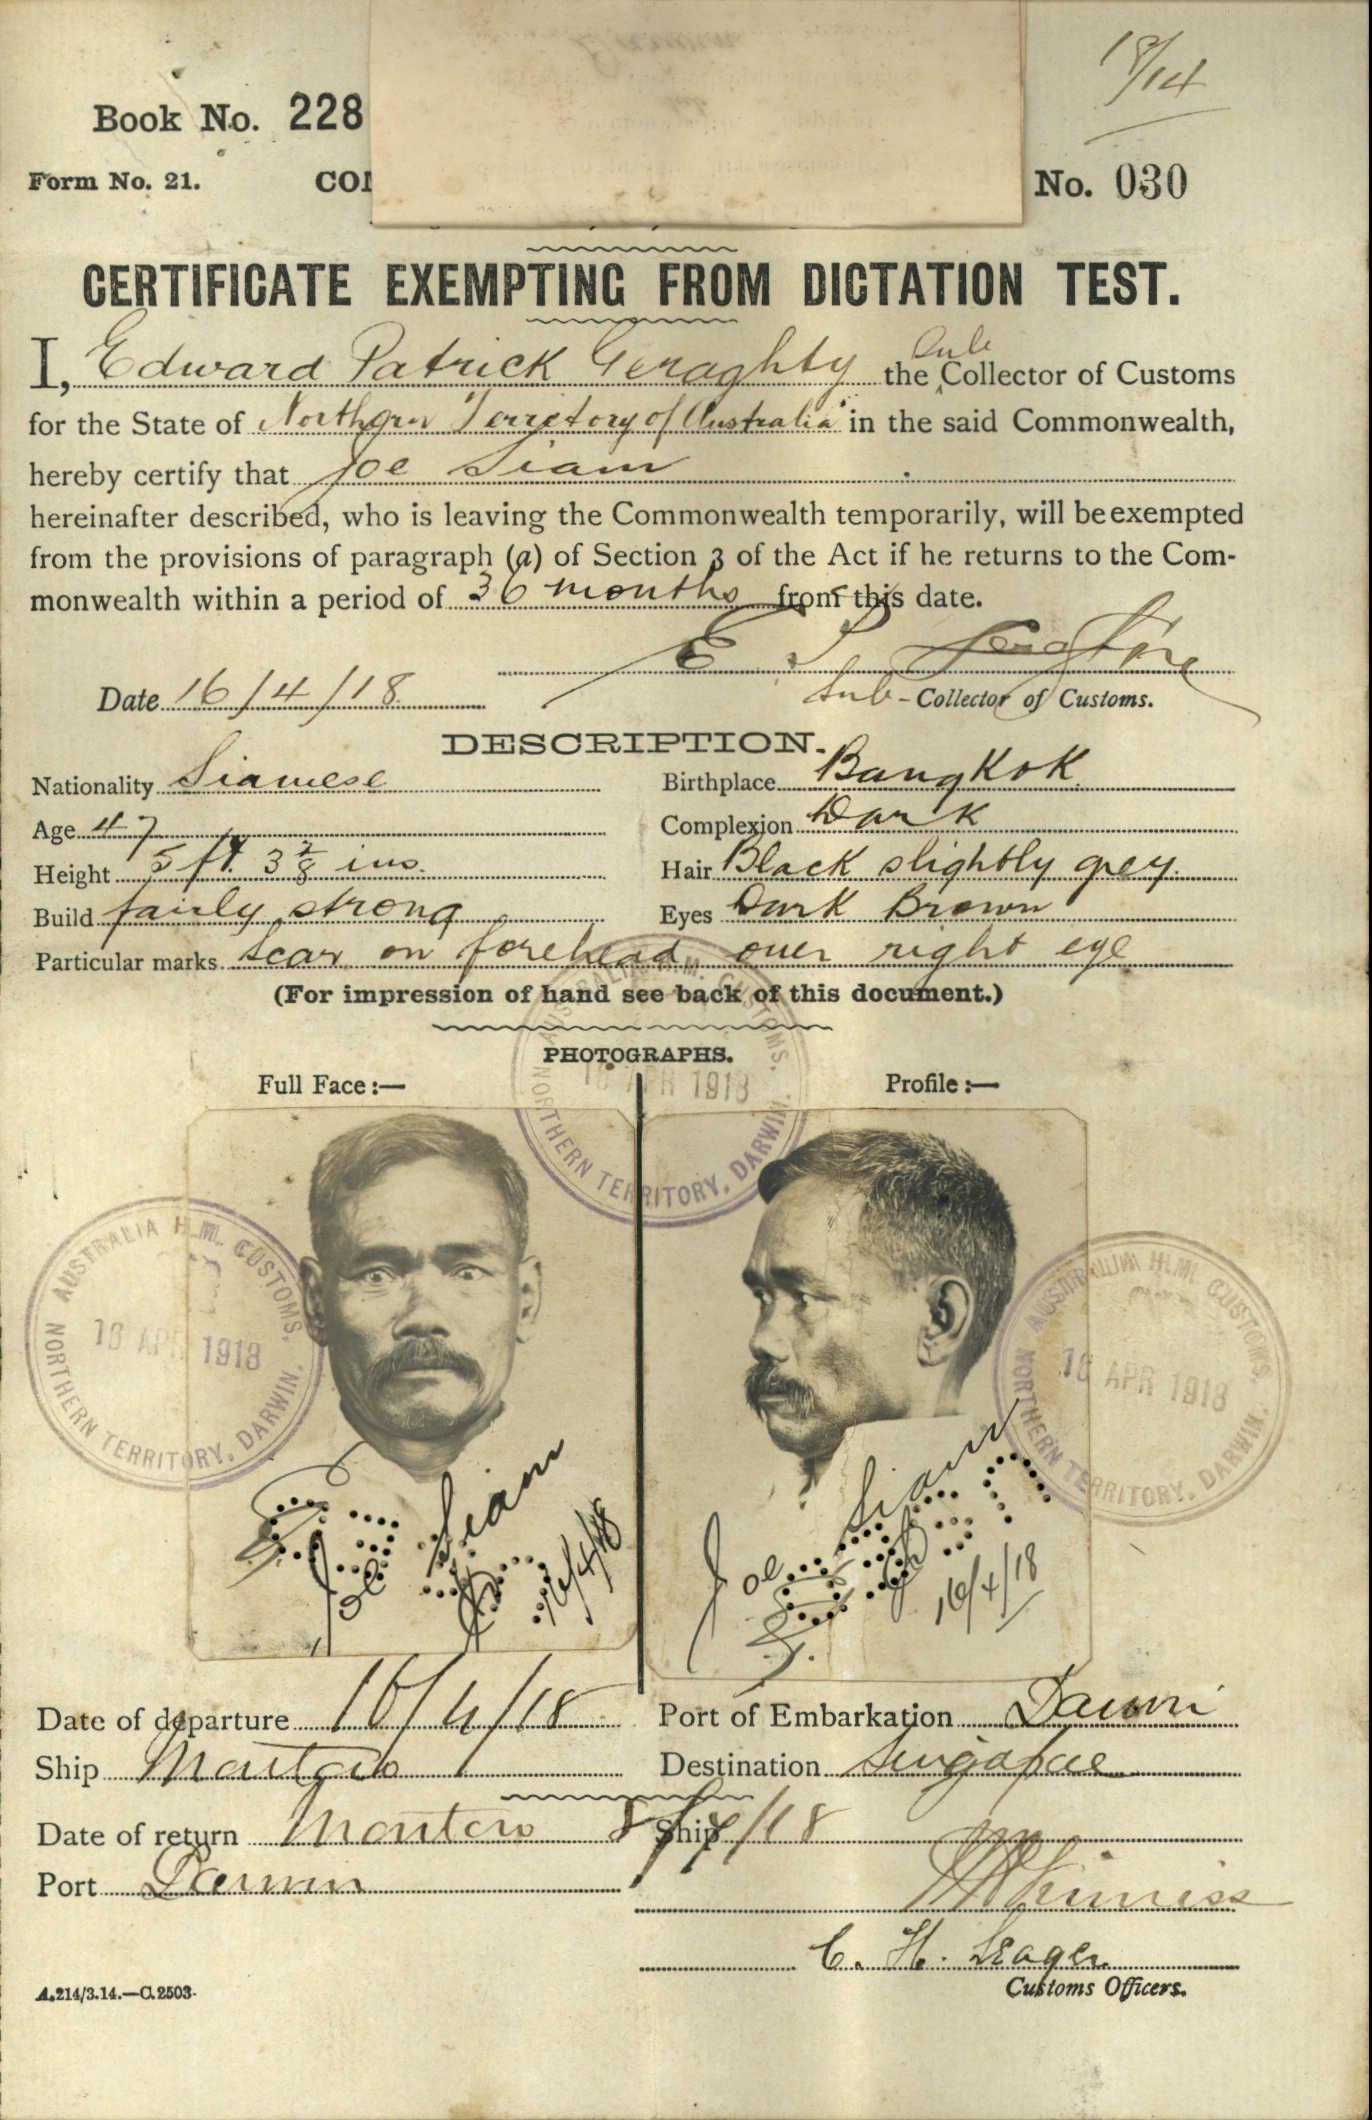 18/14
Book No. 228
Form No. 21.
No. 030
CERTIFICATE EXEMPTING FROM DICTATION TEST.
I, Edward Patrick Geraghty the Sub Collector of Customs
for the State of Northern Territory of Australia in the said Commonwealth,
hereby certify that Joe Siam
hereinafter described, who is leaving the Commonwealth temporarily, will be exempted
from the provisions of paragraph (a) of Section 3 of the Act if he returns to the Com-
monwealth within a period of 36 months from this date.
Date 16/4/18
Sub-Collector of Customs.
DESCRIPTION.
Nationality Siamese
Birthplace Bangkok
Age 47
Complexion Dark
Height 5 ft. 3 2/8 ins.
Hair Black slightly grey.
Build fairly strong
Eyes Dark Brown
Particular marks Scar on forehead over right eye
(For impression of hand see back of this document.)
PHOTOGRAPHS.
Full Face:—
Profile:—
AUSTRALIA H.M. CUSTOMS.
16 APR 1918
NORTHERN TERRITORY, DARWIN.
AUSTRALIA H.M. CUSTOMS.
16 APR 1918
NORTHERN TERRITORY, DARWIN.
AUSTRALIA H.M. CUSTOMS.
16 APR 1918
NORTHERN TERRITORY, DARWIN.
Joe Siam
16/4/18
Joe Siam
16/4/18
Date of departure 16/4/18
Port of Embarkation Darwin
Ship Montoro
Destination Singapore
Date of return Montoro 8/7/18
Ship
Port Darwin
C. H. Seager
Customs Officers.
A.214/3.14.—C.2503.